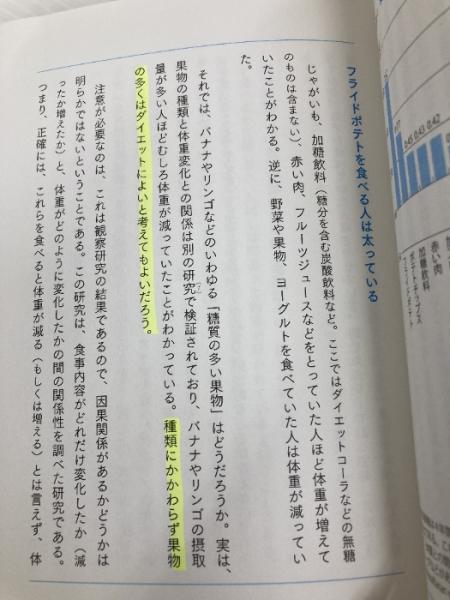 フライドポテトを食べる人は太っている
じゃがいも、加糖飲料（糖分を含む炭酸飲料など。ここではダイエットコーラなどの無糖
のものは含まない）、赤い肉、フルーツジュースなどをとっていた人ほど体重が増えて
いたことがわかる。逆に、野菜や果物、ヨーグルトを食べていた人は体重が減ってい
た。
それでは、バナナやリンゴなどのいわゆる「糖質の多い果物」はどうだろうか。実は、
果物の種類と体重変化との関係は別の研究で検証されており、バナナやリンゴの摂取
量が多い人ほどむしろ体重が減っていたことがわかっている。種類にかかわらず果物
の多くはダイエットによいと考えてもよいだろう。
注意が必要なのは、これは観察研究の結果であるので、因果関係があるかどうかは
明らかではないということである。この研究は、食事内容がどれだけ変化したか（減
ったか増えたか）と、体重がどのように変化したかの間の関係性を調べた研究である。
つまり、正確には、これらを食べると体重が減る（もしくは増える）とは言えず、体
0.45
0.43
0.42
赤い肉
加糖飲料
ポテトチップス